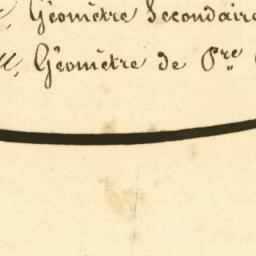 Géomètre Secondaire
Géomètre de Pre